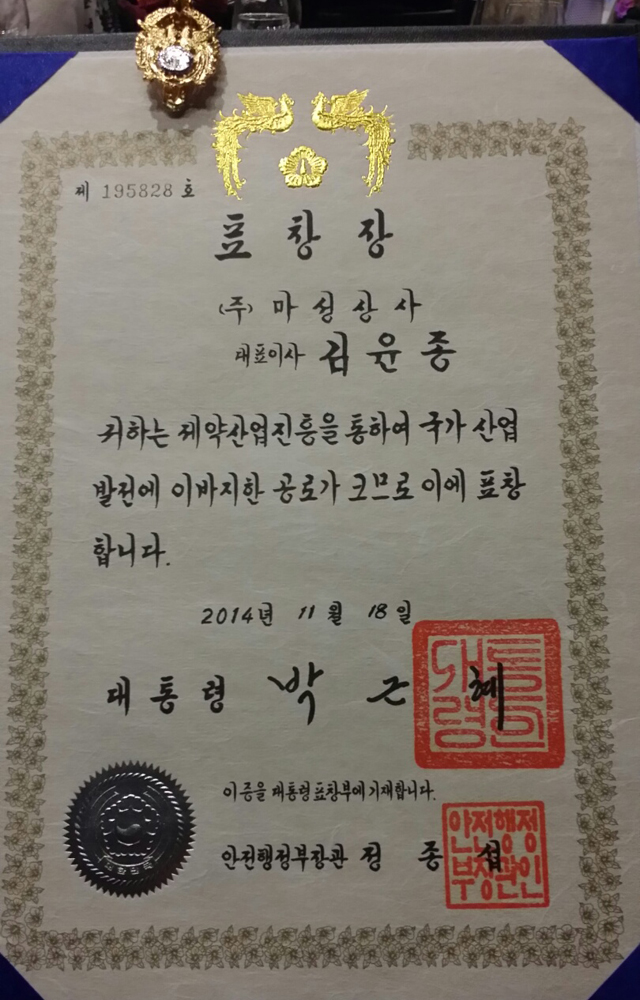 제 195828 호
표 창 장
(주) 마 성 상 사
대표이사 김 윤 종
귀하는 제약산업진흥을 통하여 국가 산업
발전에 이바지한 공로가 크므로 이에 표창
합니다.
2014년 11월 18일
대 통 령 박 근 혜
대통령의인
이 증을 대통령표창부에 기재합니다.
안전행정부장관 정 종 섭
안전행정
부장관인